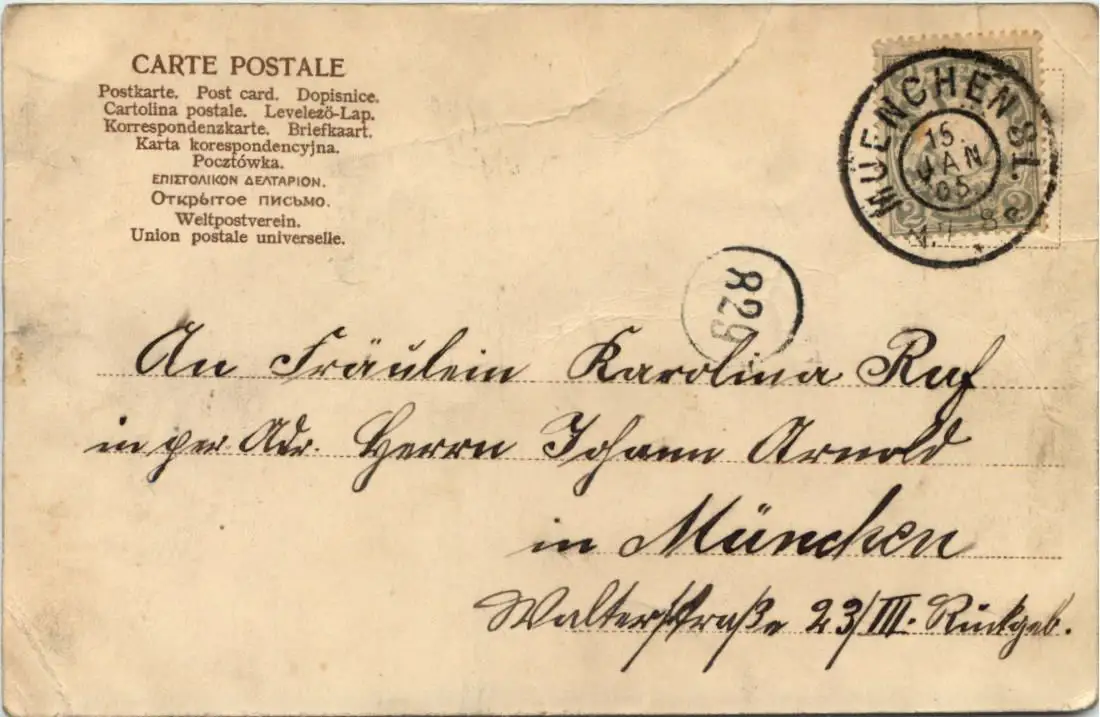 CARTE POSTALE
Postkarte. Post card. Dopisnice.
Cartolina postale. Levelező-Lap.
Korrespondenzkarte. Briefkaart.
Karta korespondencyjna.
Pocztówka.
ΕΠΙΣΤΟΛΙΚΟΝ ΔΕΛΤΑΡΙΟΝ.
Открытое письмо.
Weltpostverein.
Union postale universelle.
MUENCHEN 81.
15.
JAN
05
2 2
829
An Fräulein Karolina Ruf
in per Adr. Herrn Johann Arnold
in München
Walterstraße 23/III. Rückgeb.